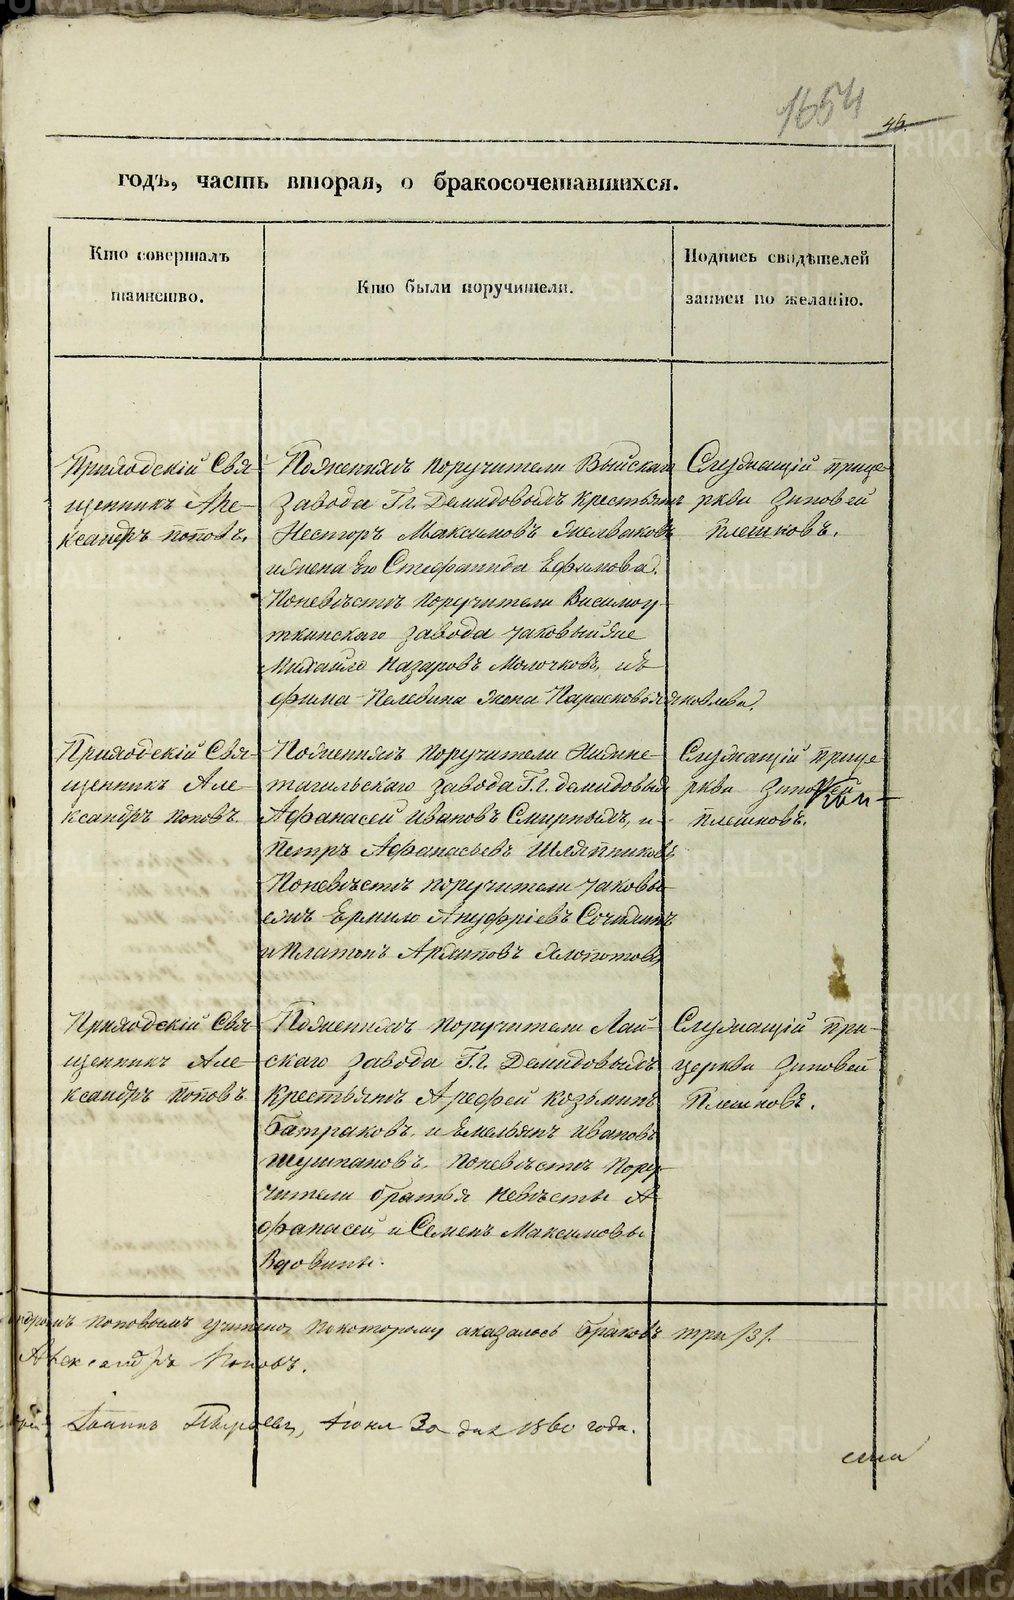 1654
46.
годъ, часть вторая, о бракосочетавшихся.
Кто совершалъ
таинство.
Кто были поручители.
Подпись свидѣтелей
записи по желанію.
Приходскій Свя-
щенникъ Але-
ксандръ поповъ.
Поженихѣ поручители Выйскаго
завода Гг. Демидовыхъ крестьянъ
Несторъ Максимовъ
ижена его Стефанида Ефимова.
Поневѣстѣ поручители Висимоу-
ткинскаго завода таковыйже
Михайло Назаровъ Молочковъ, иЕ-
фима Пелевина жена Парасковья Яковлева.
Служащій прице-
ркви Зиновей
Плешковъ.
Приходскій Свя-
щенникъ Але-
ксандръ поповъ.
Поженихѣ поручители Нижне-
тагильскаго завода Г.г. демидовыхъ
Афанасей Ивановъ Смирныхъ, и-
Петръ Афанасьевъ Шляпниковъ
Поневѣстѣ поручители таковы-
ежъ Ермило Ануфріевъ
и Платонъ Архиповъ Хлопотовъ
Служащій прице-
ркви Зиновей
плешковъ.
Приходскій Свя-
щенникъ Але-
ксандръ поповъ.
Поженихѣ поручители Лай-
скаго завода Г.г. Демидовыхъ
крестьянъ Арефей козьминъ
Батраковъ, и Емельянъ ивановъ
шушпановъ. поневѣстѣ пору-
чители братья невѣсты А-
фанасей, и Семенъ Максимовы
Вдовины.
Служащій при-
церкви Зиновей
Плешковъ.
ндромъ поповымъ учтено, покоторому оказалось браковъ три /3/.
Александръ Поповъ.
Іоаннъ Іюня 30 дня 1860 года.